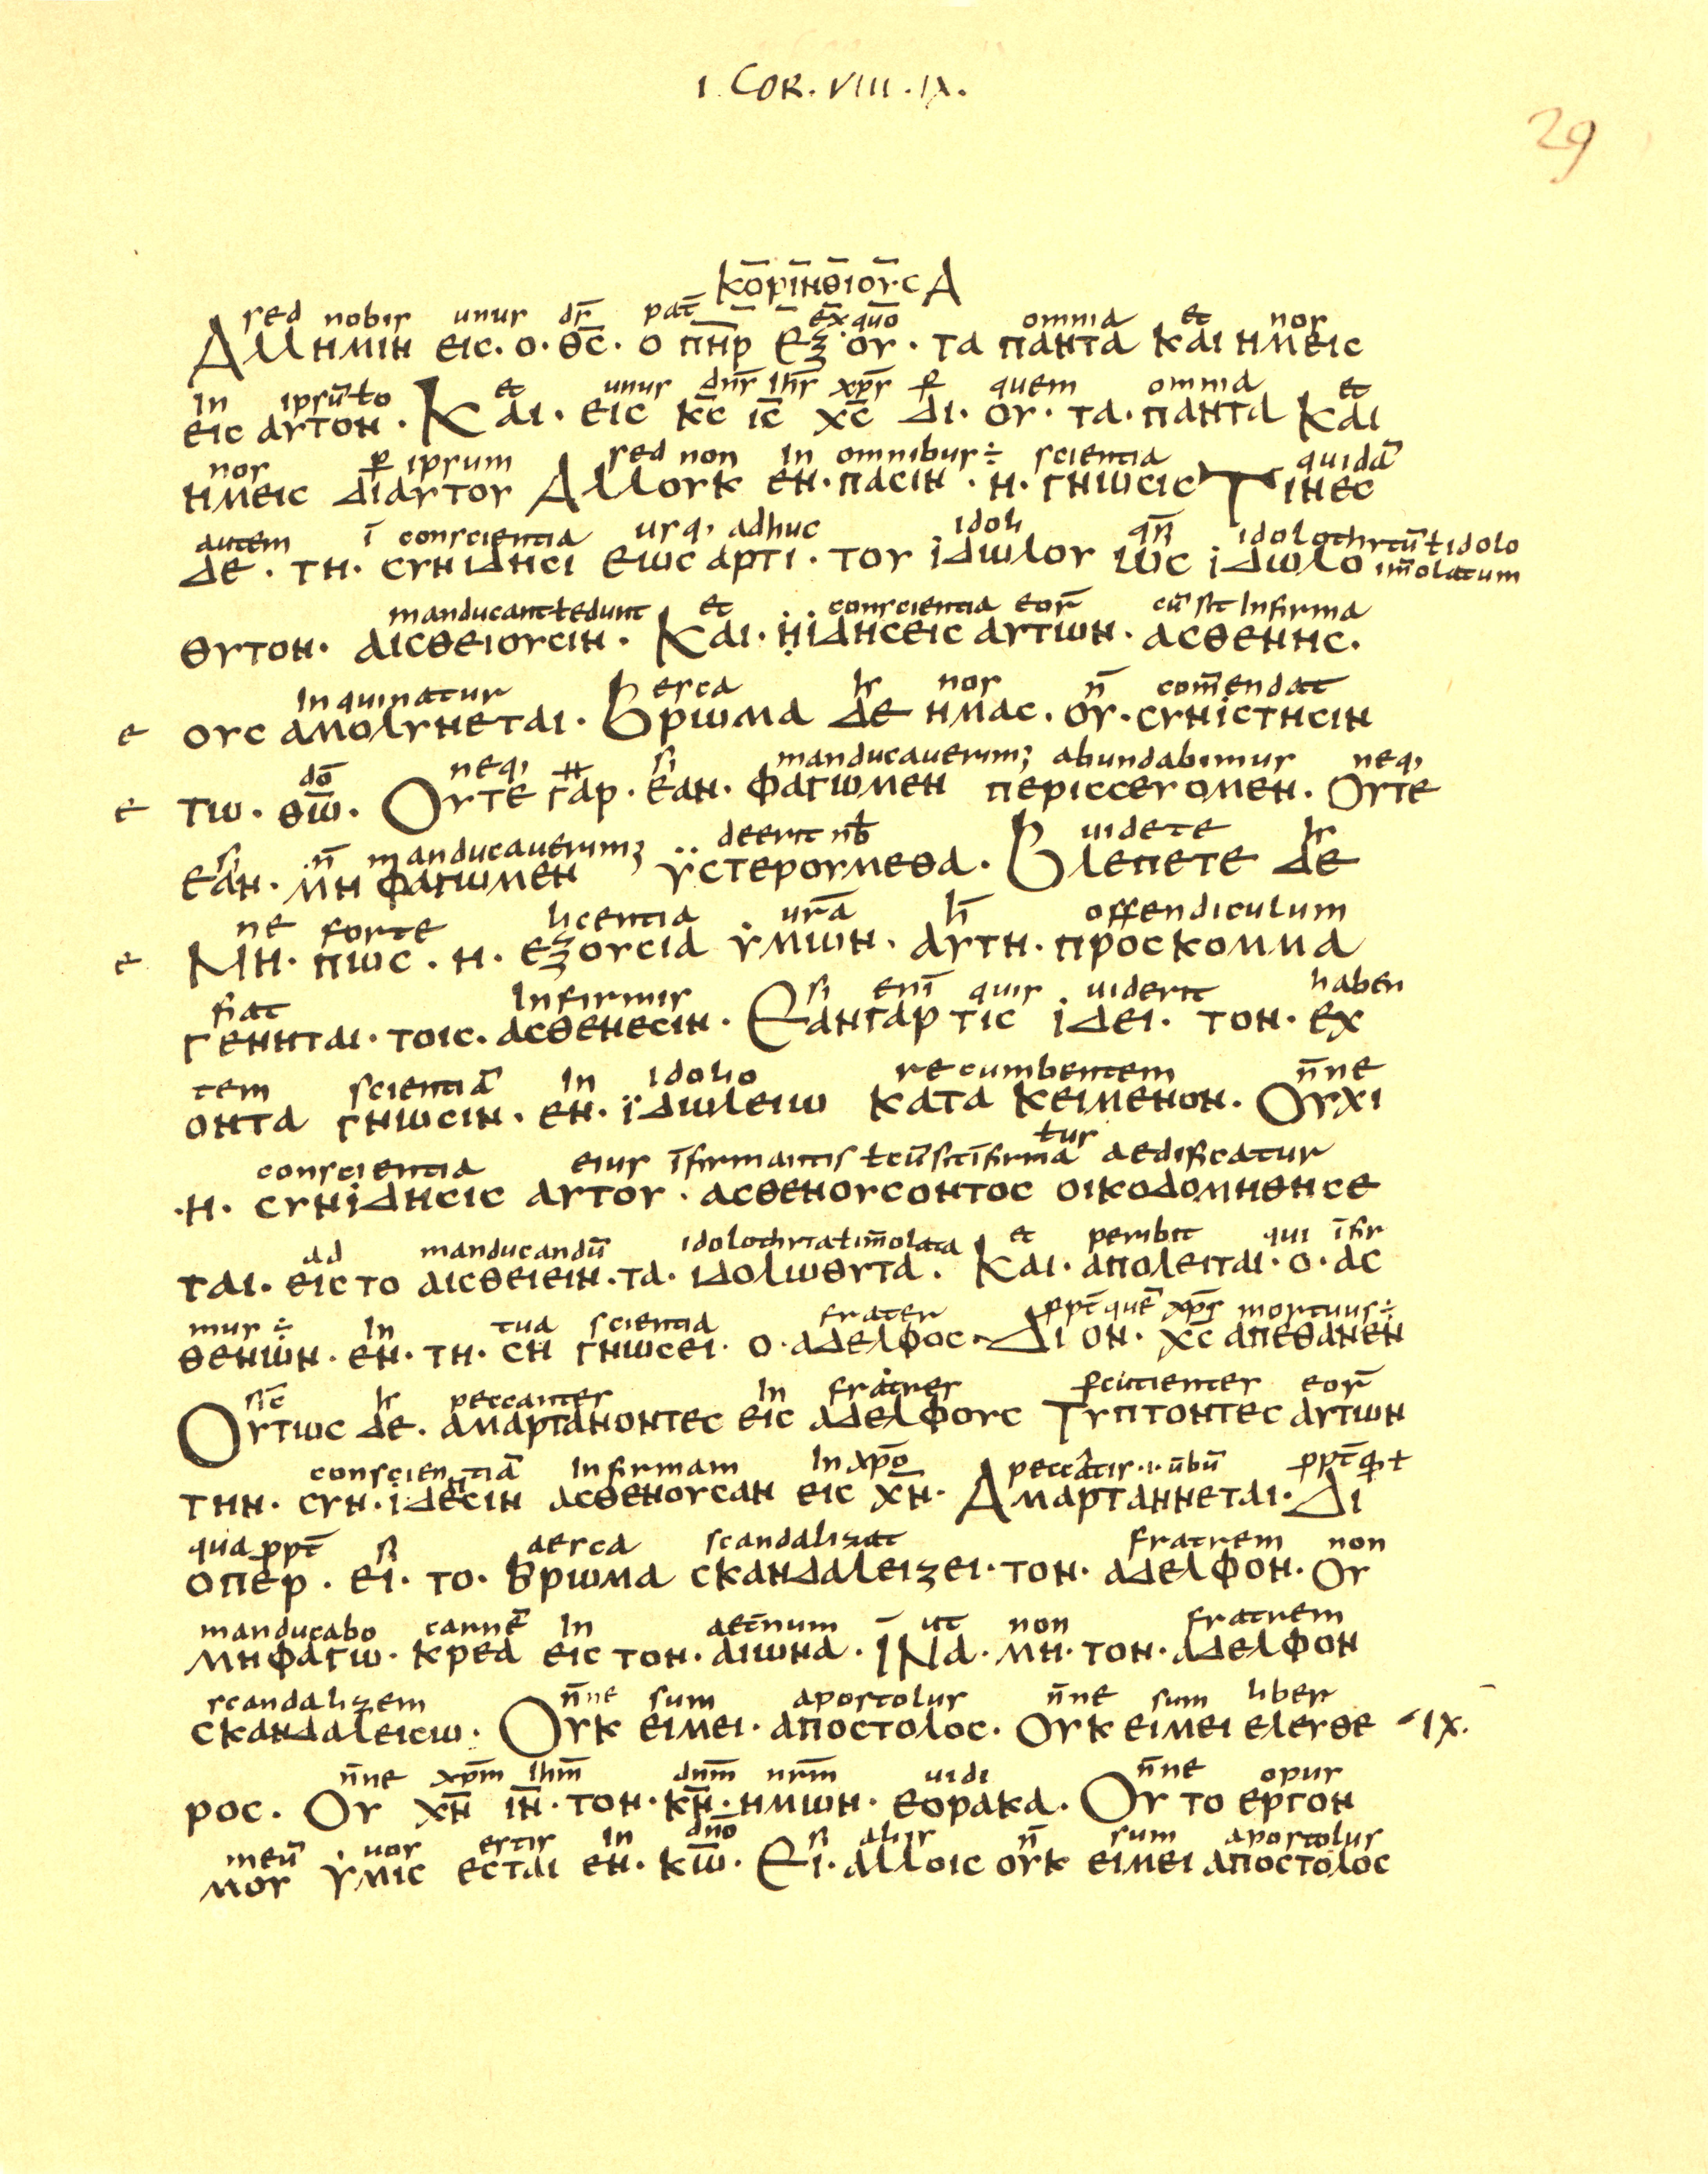 I. COR. VIII. IX.
29
κο̅ρι̅νθιου̅ς Α
sed nobis unus ds̅ pat̅ ex quo omnia et nos
Αλλημιν εις· ο· θ̅ς̅· ο π̅η̅ρ̅ εξ ου· τα παντα και ημεις
in ipsu̅ ł o et unus dn̅s ih̅s xp̅s ꝑ quem omnia et
εις αυτον· Και· εις κ̅ς̅ ι̅ς̅ χ̅ς̅ δι· ου· τα· παντα Και
nos ꝑ ipsum sed non in omnibus ÷ scientia quida̅
ημεις διαυτου Αλλουκ εν· πασιν· η· γνωσις Τινες
autem i̅ conscientia usq, adhuc idoli qn̅ idolothrtu̅ ł idolo
δε· τη· συνιδησι εως αρτι· του ιδωλου ως ιδωλο im̅olatum
manducant ł edunt et conscientia eor̅ cu̅ sit infirma
θυτον· αισθειουσιν· Και· ηιδησεις αυτων· ασθενης·
inquinatur esca h̅r nos n̅ com̅endat
e ους αμολυνεται· Βρωμα δε ημας· ου· συνιστησιν
do̅ neq, ⧺ si manducauerim; abundabimus neq,
e τω· θ̅ω̅· Ουτε γαρ· εαν· φαγωμεν περισσευομεν· Ουτε
si n̅ manducauerim; deerit nb̅ uidete h̅r
εαν· μη φαγωμεν υστερουμεθα· Βλεπετε δε
ne forte licentia ur̅a h̅ offendiculum
e Μη· πως· η· εξουσια υμων· αυτη· προσκομμα
fiat infirmis si eni̅ quis uiderit haben
γενηται· τοις· ασθενεσιν· Εανγαρ τις ιδει· τον· εχ
tem scientia̅ in idolio recumbentem n̅ne
οντα γνωσιν· εν· ϊδωλειω κατα κειμενον· Ουχι
conscientia eius i̅firmantis ł cu̅ sit i̅firma tur aedificatur
·η· συνιδησις αυτου· ασθενουσοντος οικοδομηθησε
ad manducandu̅ idolothrta ł im̅olata et peribit qui i̅fir
ται· εις το αισθειειν· τα· ιδολωθυτα· Και· απολειται· ο· ας
mus ÷ in tua scientia frater ꝓpt̅ que̅ xp̅s mortuus ÷
θενων· εν· τη· ση γνωσει· ο· αδελφος· Δι ον· χ̅ς̅ απεθανεν
sic̅ h̅r peccantes in fratres ꝑcutientes eor̅
Ουτως δε· αμαρτανοντες εις αδελφους Τυπτοντες αυτων
conscientia̅ infirmam in xp̅o peccatis ·i· u̅bu̅ ꝓpt̅ q̅ ł
την· συν·ιδεσιν ασθενουσαν εις χ̅ν̅· Αμαρταννεται· Δι
qua ꝓpt̅ si aesca scandalizat fratrem non
οπερ· ει· το· Βρωμα σκανδαλειζει· τον· αδελφον· Ου
manducabo carne̅ in aet̅num ut non fratrem
μηφαγω· κρεα εις τον· αιωνα· ΙΝα· μη· τον· αδελφον
scandalizem n̅ne sum apostolus n̅ne sum liber
σκανδαλεισω· Ουκ ειμει· αποστολος· ουκ ειμει ελευθε IX.
n̅ne xp̅m ih̅m dn̅m nr̅m uidi n̅ne opus
ρος· Ου χ̅ν̅ ι̅ν̅· τον· κ̅ν̅· ημων· εορακα· Ου το εργον
meu̅ uos estis in dn̅o si aliis n̅ sum apostolus
μου υμις εσται εν· κ̅ω̅· Ει· αλλοις ουκ ειμει αποστολος